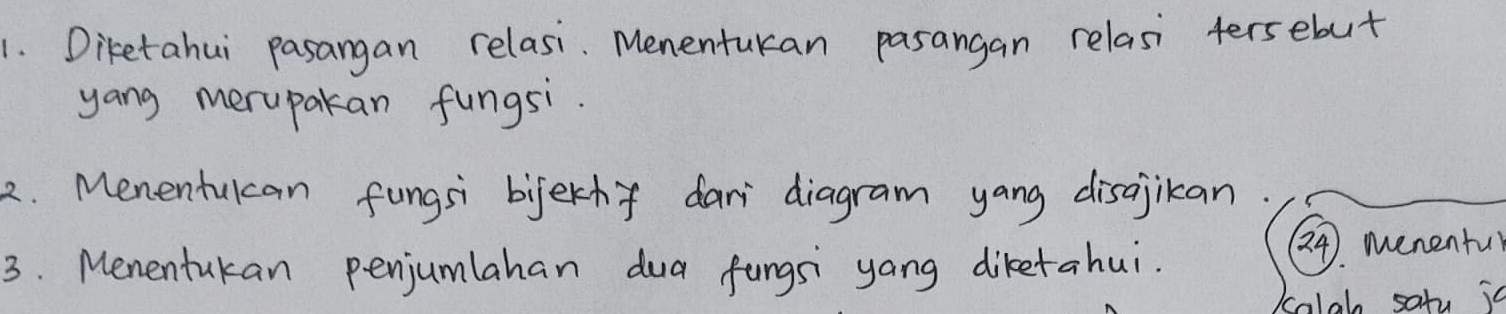 1. Diketahui pasangan relasi. Menentukan pasangan relasi tersebut
yang merupakan fungsi.
2. Menentukan fungsi bijektif dari diagram yang disajikan.
3. Menentukan penjumlahan dua fungsi yang diketahui.
24. Menentuk
salah satu